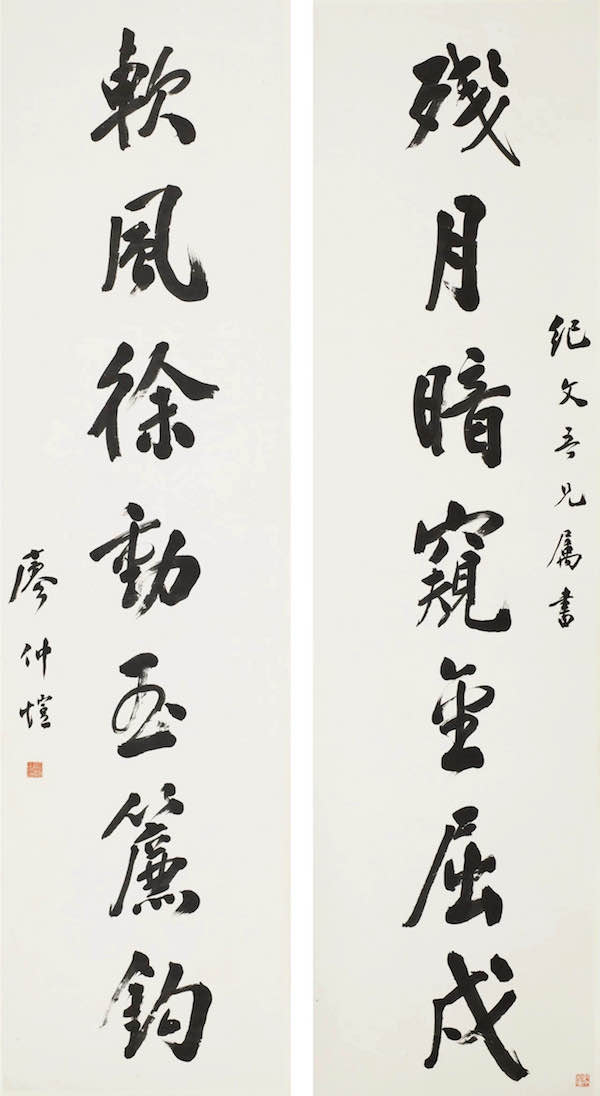 紀文吾兄屬書
残月暗窺金屈戍
軟風徐動玉簾鈎
廖仲愷